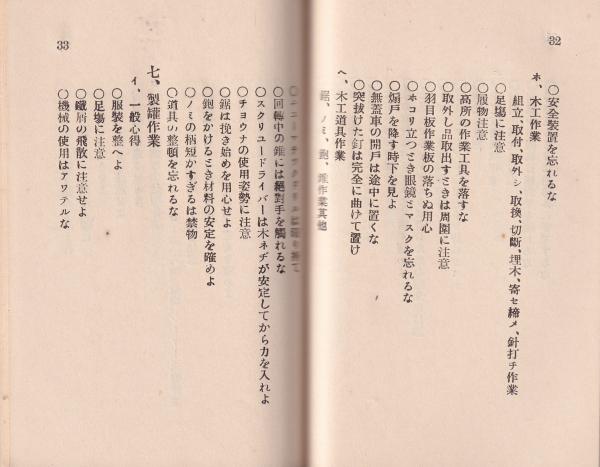 32
○安全裝置を忘れるな
ホ、木工作業
組立、取付、取外シ、取換、切斷、埋木、寄セ締メ、針打チ作業
○足塲に注意
○履物注意
○高所の作業工具を落すな
○取外し品取出すときは周圍に注意
○羽目板作業板の落ちぬ用心
○ホコリ立つとき眼鏡とマスクを忘れるな
○煽戸を降す時下を見よ
○無蓋車の開戸は途中に置くな
○突拔けた釘は完全に曲けて置け
ヘ、木工道具作業
鋸、ノミ、鉋、錐作業其他
○回轉中の錐には絕對手を觸れるな
○スクリユードライバーは木ネヂが安定してから力を入れよ
○チヨウナの使用姿勢に注意
○鋸は挽き始めを用心せよ
○鉋をかけるとき材料の安定を確めよ
○ノミの柄短かすぎるは禁物
○道具の整頓を忘れるな
七、製罐作業
イ、一般心得
○服裝を整へよ
○足塲に注意
○鐵屑の飛散に注意せよ
○機械の使用はアワテルな
33